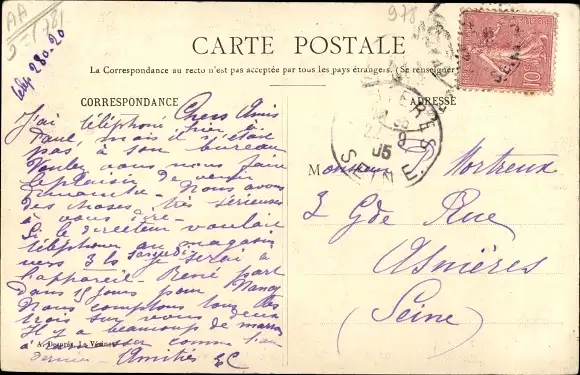 AA
978
CARTE POSTALE
La Correspondance au recto n'est pas acceptée par tous les pays étrangers. (Se renseigner
CORRESPONDANCE
ADRESSE
Chers Amis
J'ai téléphoné hier à
Paul, mais il n'était
pas à son bureau
Voulez vous nous faire
le plaisir de venir
Dimanche. Nous avons
des choses très sérieuses
à vous dire.
Si le directeur voulait
téléphoner au magasin
vers 3 h samedi je serai à
l'appareil. René part
dans 15 jours pour Nancy
Nous comptons tous les
trois sur vous deux
Il y a beaucoup de
à comme l'an
dernier. Amitiés EC
A. Le Vésinet
Monsieur Mortreux
3 Gde Rue
Asnières
(Seine)
05
SEINE
10